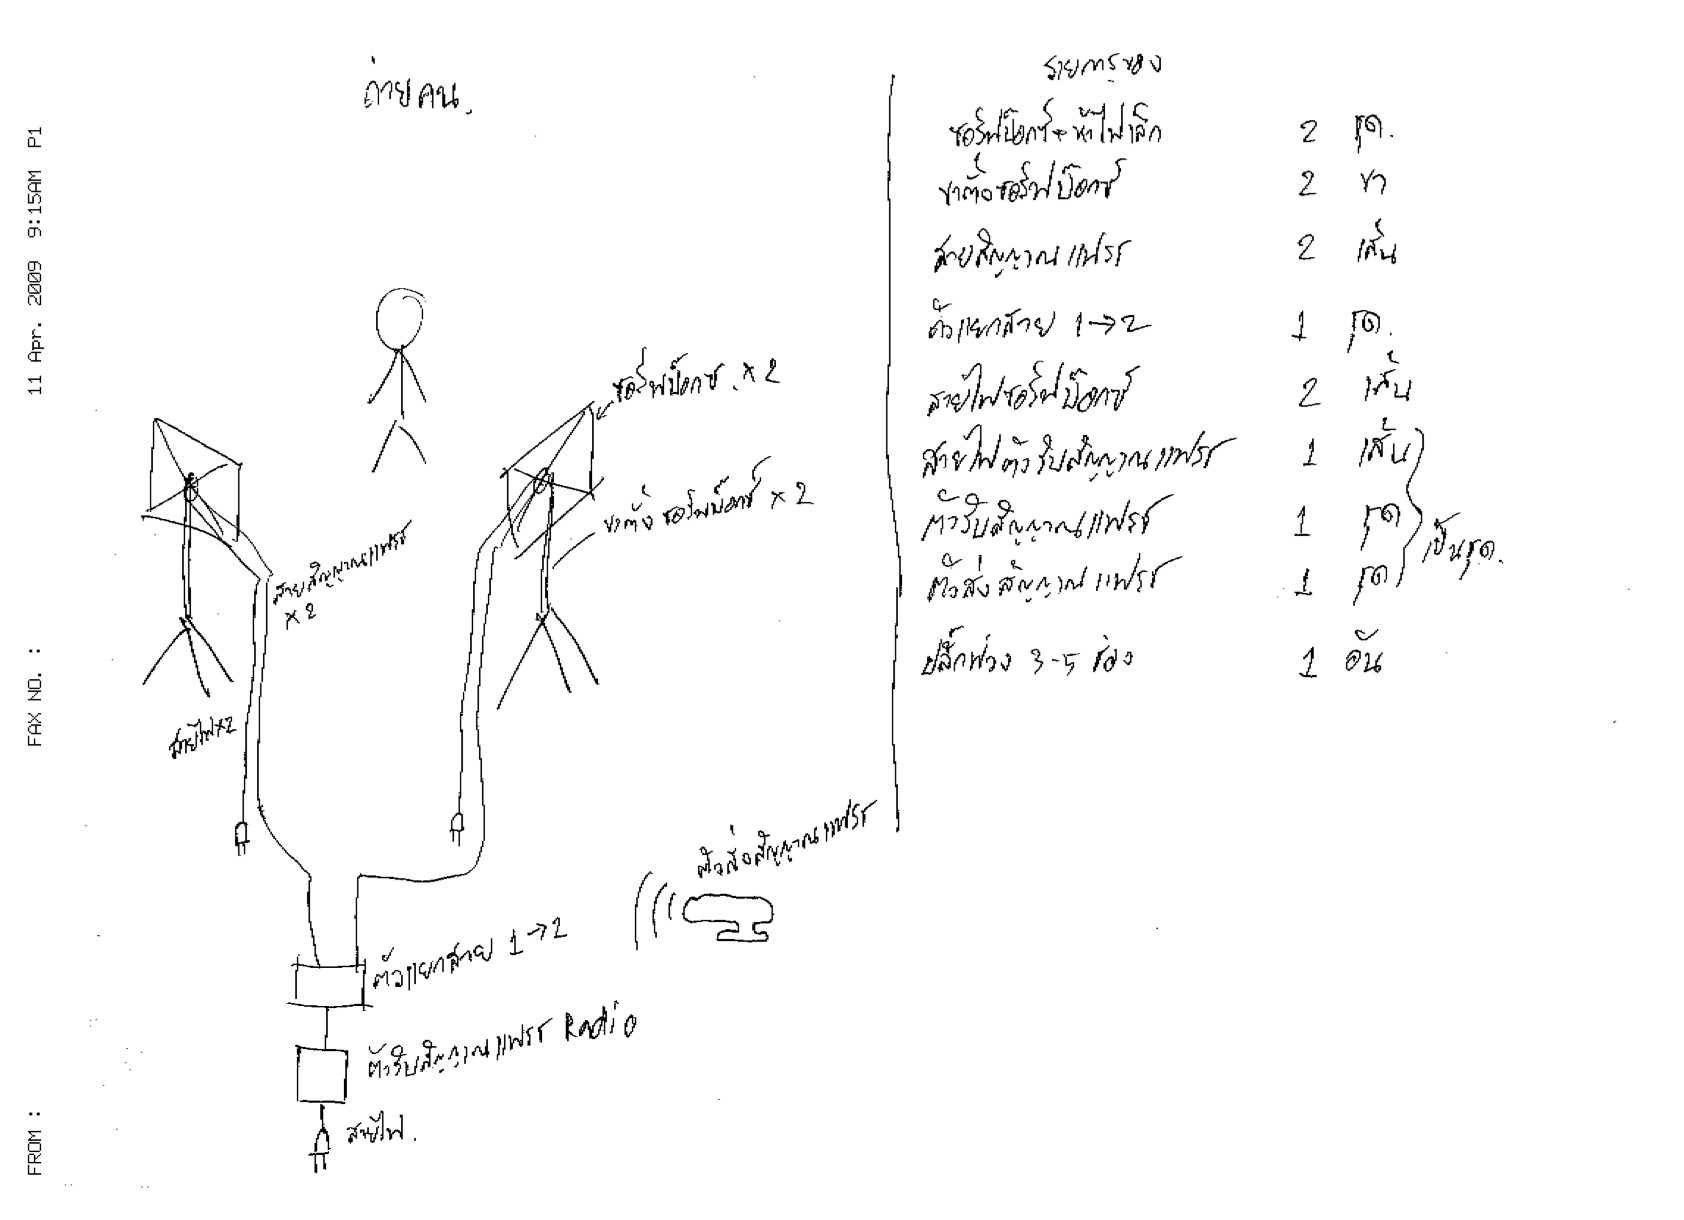 11 Apr. 2009 9:15AM P1
FAX NO. :
FROM :
ถ่ายคน.
ซอร์ฟบ็อกซ์ x 2
ขาตั้งซอร์ฟบ็อกซ์ x 2
สายสัญญาณแฟรช
x 2
สายไฟ x2
ตัวส่งสัญญาณแฟรช
ตัวแยกสาย 1→2
ตัวรับสัญญาณแฟรช Radio
สายไฟ.
รายการของ
ซอร์ฟบ็อกซ์+หัวไฟเล็ก 2 ชุด.
ขาตั้งซอร์ฟบ็อกซ์ 2 ขา
สายสัญญาณแฟรช 2 เส้น
ตัวแยกสาย 1→2 1 ชุด.
สายไฟซอร์ฟบ็อกซ์ 2 เส้น
สายไฟตัวรับสัญญาณแฟรช 1 เส้น
ตัวรับสัญญาณแฟรช 1 ชุด
ตัวส่งสัญญาณแฟรช 1 ชุด
เป็นชุด.
ปลั๊กพ่วง 3-5 ช่อง 1 อัน